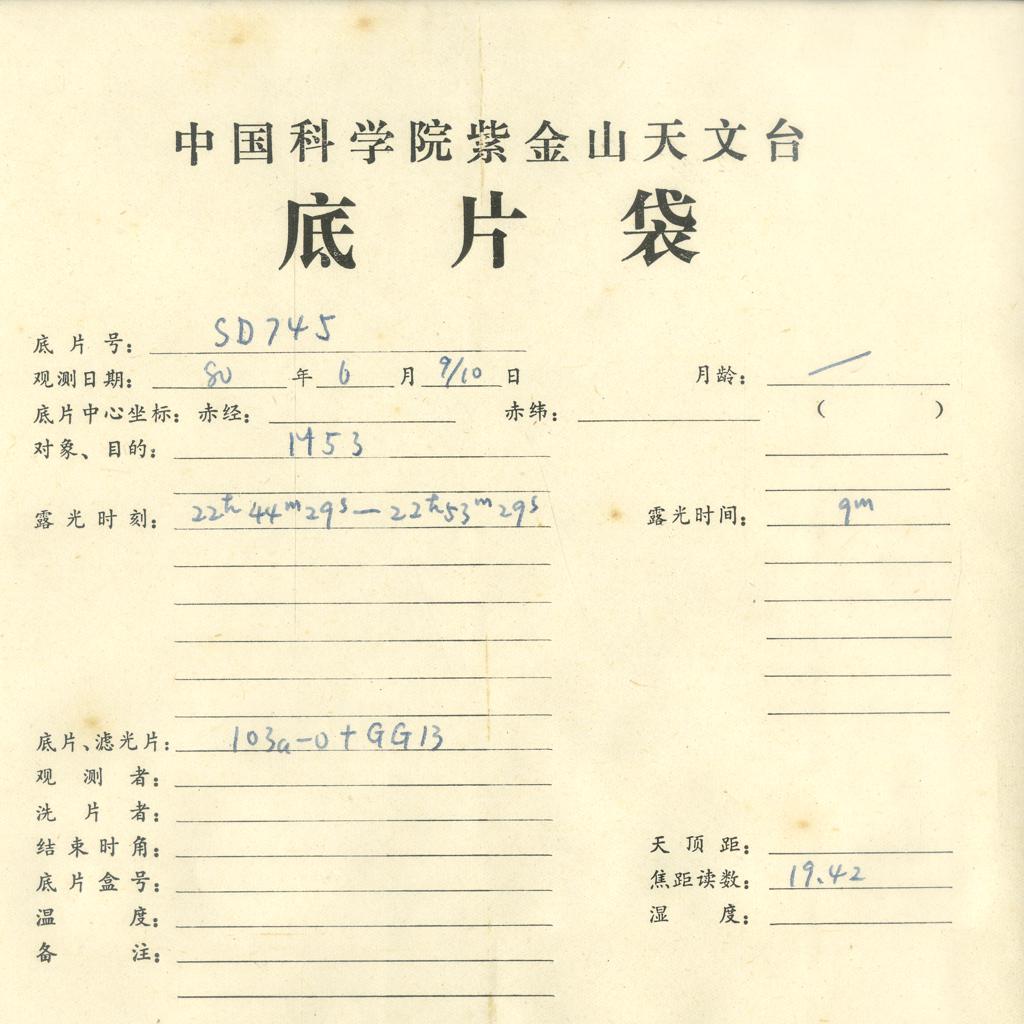 中国科学院紫金山天文台
底片袋
底片号: SD745
观测日期: 80 年 6 月 9/10 日 月龄: —
底片中心坐标: 赤经: 赤纬: ( )
对象、目的: M53
露光时刻: 22h 44m 29s — 22h 53m 29s 露光时间: 9m
底片、滤光片: 103a-O + GG13
观测者:
洗片者:
结束时角: 天顶距:
底片盒号: 焦距读数: 19.42
温度: 湿度:
备注: